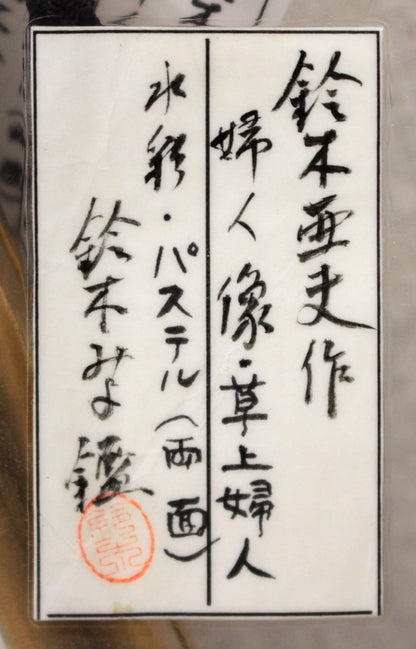 鈴木亜夫作
婦人像・草上婦人
水彩・パステル（両面）
鈴木みよ鑑